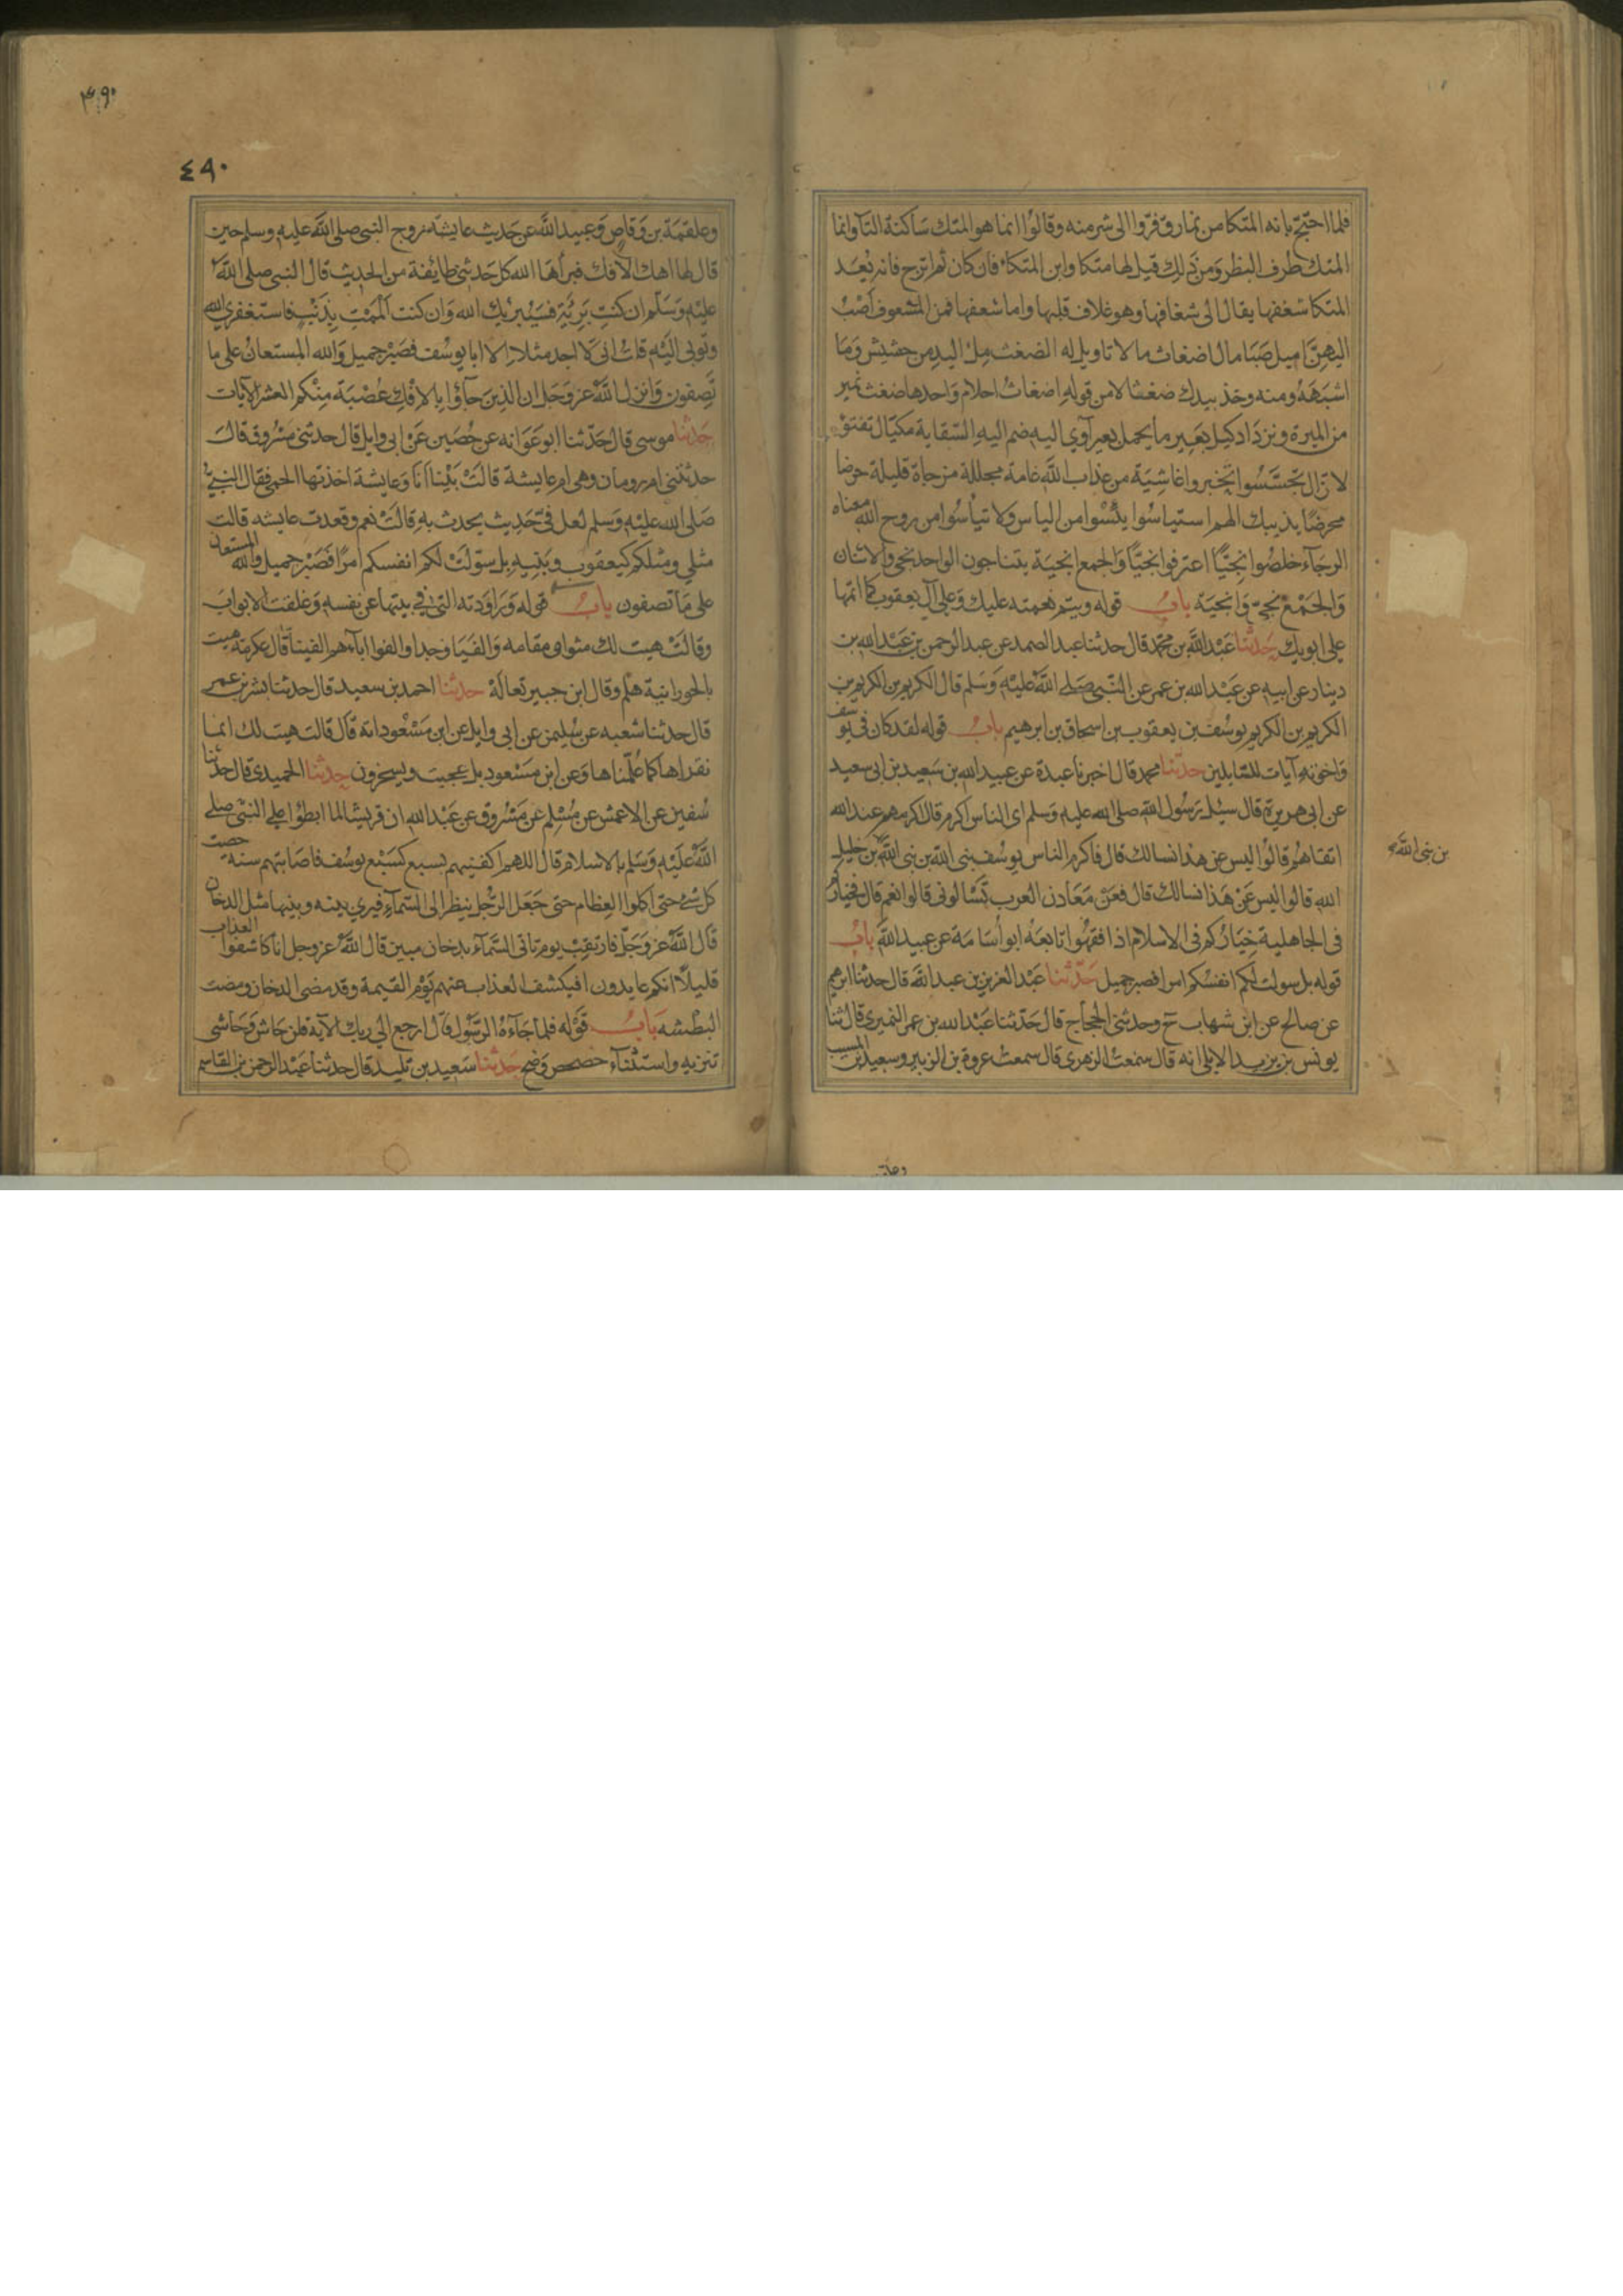 فلما احتج بانه المتكا من نمارق فروا الى شر منه وقالوا انما هو المتك ساكنة التآ وانما
المتك طرف البظر ومن ذلك قيل لها متكا وابن المتكاء فان كان ثم اترج فانه بعد
المتكا شغفها يقال الى شغافها وهو غلاف قلبها واما شعفها فمن المشعوف اصب
اليهن اميل صبا مال اضغاث ما لا تاويل له الضغث ملء اليد من حشيش وما
اشبهه ومنه وخذ بيدك ضغثا لا من قوله اضغاث احلام واحدها ضغث نمير
من الميرة ونزداد كيل بعير ما يحمل بعير آوي اليه ضم اليه السقاية مكيال تفتؤ
لا تزال تجسسوا تخبروا غاشية من عذاب الله عامة مجللة مزجاة قليلة حرضا
محرضا يذيبك الهم استياسوا يئسوا من الياس ولا تيأسوا من روح الله معناه
الرجآء خلصوا نجيا اعترفوا نجيا والجمع انجية يتناجون الواحد نجي والاثنان
والجمع نجي وانجية باب قوله ويتم نعمته عليك وعلى آل يعقوب كما اتمها
على ابويك حدثنا عبد الله بن محمد قال حدثنا عبد الصمد عن عبد الرحمن بن عبد الله بن
دينار عن ابيه عن عبد الله بن عمر عن النبي صلى الله عليه وسلم قال الكريم بن الكريم بن
الكريم بن الكريم يوسف بن يعقوب بن اسحاق بن ابرهيم باب قوله لقد كان في يوسف
واخوته آيات للسايلين حدثنا محمد قال اخبرنا عبدة عن عبيد الله بن سعيد بن ابي سعيد
عن ابي هريرة قال سيل رسول الله صلى الله عليه وسلم اي الناس اكرم قال اكرمهم عند الله
اتقاهم قالوا ليس عن هذا نسالك قال فاكرم الناس يوسف نبي الله بن نبي الله بن خليل
بن نبي الله
الله قالوا ليس عن هذا نسالك قال فعن معادن العرب تسالوني قالوا نعم قال فخياركم
في الجاهلية خياركم في الاسلام اذا فقهوا تابعه ابو أسامة عن عبيد الله باب
قوله بل سولت لكم انفسكم امرا فصبر جميل حدثنا عبد العزيز بن عبد الله قال حدثنا ابرهيم
عن صالح عن ابن شهاب ح وحدثني الحجاج قال حدثنا عبد الله بن عمر النميري قال ثنا
يونس بن يزيد الايلي انه قال سمعت الزهري قال سمعت عروة بن الزبير وسعيد بن المسيب
٤٩٠
٤٩٠
وعلقمة بن وقاص وعبيد الله عن حديث عايشة زوج النبي صلى الله عليه وسلم حين
قال لها اهل الافك فبرأها الله كل حدثني طايفة من الحديث قال النبي صلى الله
عليه وسلم ان كنت بريئة فسيبريك الله وان كنت الممت بذنب فاستغفري الله
وتوبي اليه قلت اني لا اجد مثلا الا ابا يوسف فصبر جميل والله المستعان على ما
تصفون وانزل الله عز وجل ان الذين جآؤا بالافك عصبة منكم العشر الآيات
حدثنا موسى قال حدثنا ابو عوانه عن حصين عن ابي وايل قال حدثني مسروق قال
حدثتني ام رومان وهي ام عايشة قالت بينا انا وعايشة اخذتها الحمى فقال النبي
صلى الله عليه وسلم لعل في حديث يحدث به قالت نعم وقعدت عايشه قالت
مثلي ومثلكم كيعقوب وبنيه بل سولت لكم انفسكم امرا فصبر جميل والله المستعان
على ما تصفون باب قوله وراودته التي في بيتها عن نفسه وغلقت الابواب
وقالت هيت لك مثواه مقامه والفيا وجدا والفوا اباءهم الفينا قال عكرمة هيت
بالحورانية هلم وقال ابن جبير تعاله حدثنا احمد بن سعيد قال حدثنا بشر بن عمر
قال حدثنا شعبه عن سليمن عن ابي وايل عن ابن مسعود انه قال قالت هيت لك انما
نقراها كما علمناها وعن ابن مسعود بل عجبت ويسخرون حدثنا الحميدي قال حدثنا
سفين عن الاعمش عن مسلم عن مسروق عن عبد الله ان قريشا لما ابطؤا على النبي صلى
الله عليه وسلم بالاسلام قال اللهم اكفنيهم بسبع كسبع يوسف فاصابتهم سنة حصت
كل شئ حتى اكلوا العظام حتى جعل الرجل ينظر الى السمآء فيرى بينه وبينها مثل الدخان
قال الله عز وجل فارتقب يوم تاتي السمآء بدخان مبين قال الله عز وجل انا كاشفوا العذاب
قليلا انكم عايدون افيكشف العذاب عنهم يوم القيمة وقد مضى الدخان ومضت
البطشه باب قوله فلما جآءه الرسول قال ارجع الى ربك الآية قلن حاش وحاشى
تنزيه واستثنآء حصحص وضح حدثنا سعيد بن تليد قال حدثنا عبد الرحمن بن القاسم